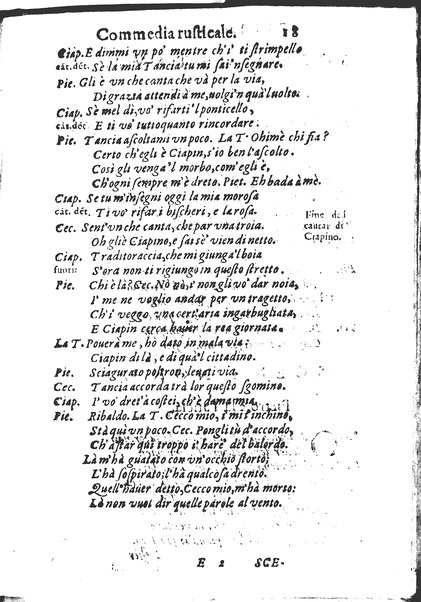 Commedia rusticale. 18
Ciap. E dimmi un po' mentre ch'i' ti strimpello
cãt. dét. Sè la mia Tancia tu mi sai 'nsegnare.
Pie. Gli è un che canta che và per la via,
Di grazia attendi à me, uolgi 'n quà 'l uolto.
Ciap. Sè mel dì, vo' rifarti 'l ponticello,
cãt. dét. E ti vo' tutto quanto rincordare:
Pie. Tancia ascoltami un poco. La T. Ohimè chi fia?
Certo ch'egli è Ciapin, s'io ben l'ascolto.
Così gli venga 'l morbo, com'egli è,
Ch'ogni sempre m'è dreto. Piet. Eh bada à mè.
Ciap. Se tu m'insegni oggi la mia morosa
cãt. dét. Ti vo' rifar i bischeri, e la rosa.
Fine del
cantar di
Ciapino.
Cec. Sent'un che canta, che par una troia.
Oh gliè Ciapino, e sai sè vien di netto.
Ciap. Traditoraccia, che mi giunga 'l boia
fuori: S'ora non ti rigiungo in questo stretto.
Pie. Chi è là? Cec. Nò nò, i' non gli vo' dar noia,
I' me ne voglio andar per un tragetto,
Ch'i' veggo, una cert'aria ingarbugliata,
E Ciapin cerca hauer la rea giornata.
La T. Pouerà me, hò dato in mala via:
Ciapin di là, e di quà 'l cittadino.
Pie. Sciagurato poltron, leuati via.
Cec. Tancia accorda trà lor questo sgomino.
Ciap. I' vo' dret'à costei, ch'è dama mia.
Pie. Ribaldo. La T. Cecco mio, i' mi t'inchino,
Stà quì un poco. Cec. Pongli tù d'accordo,
Ch'à star quì troppo i' harè del balordo.
Là m'hà guatato con un'occhio storto;
L'hà sospirato; l'hà qualcosa drento.
Quell'hauer detto, Cecco mio, m'hà morto:
Là non vuol dir quelle parole al vento.
E 2 SCE-